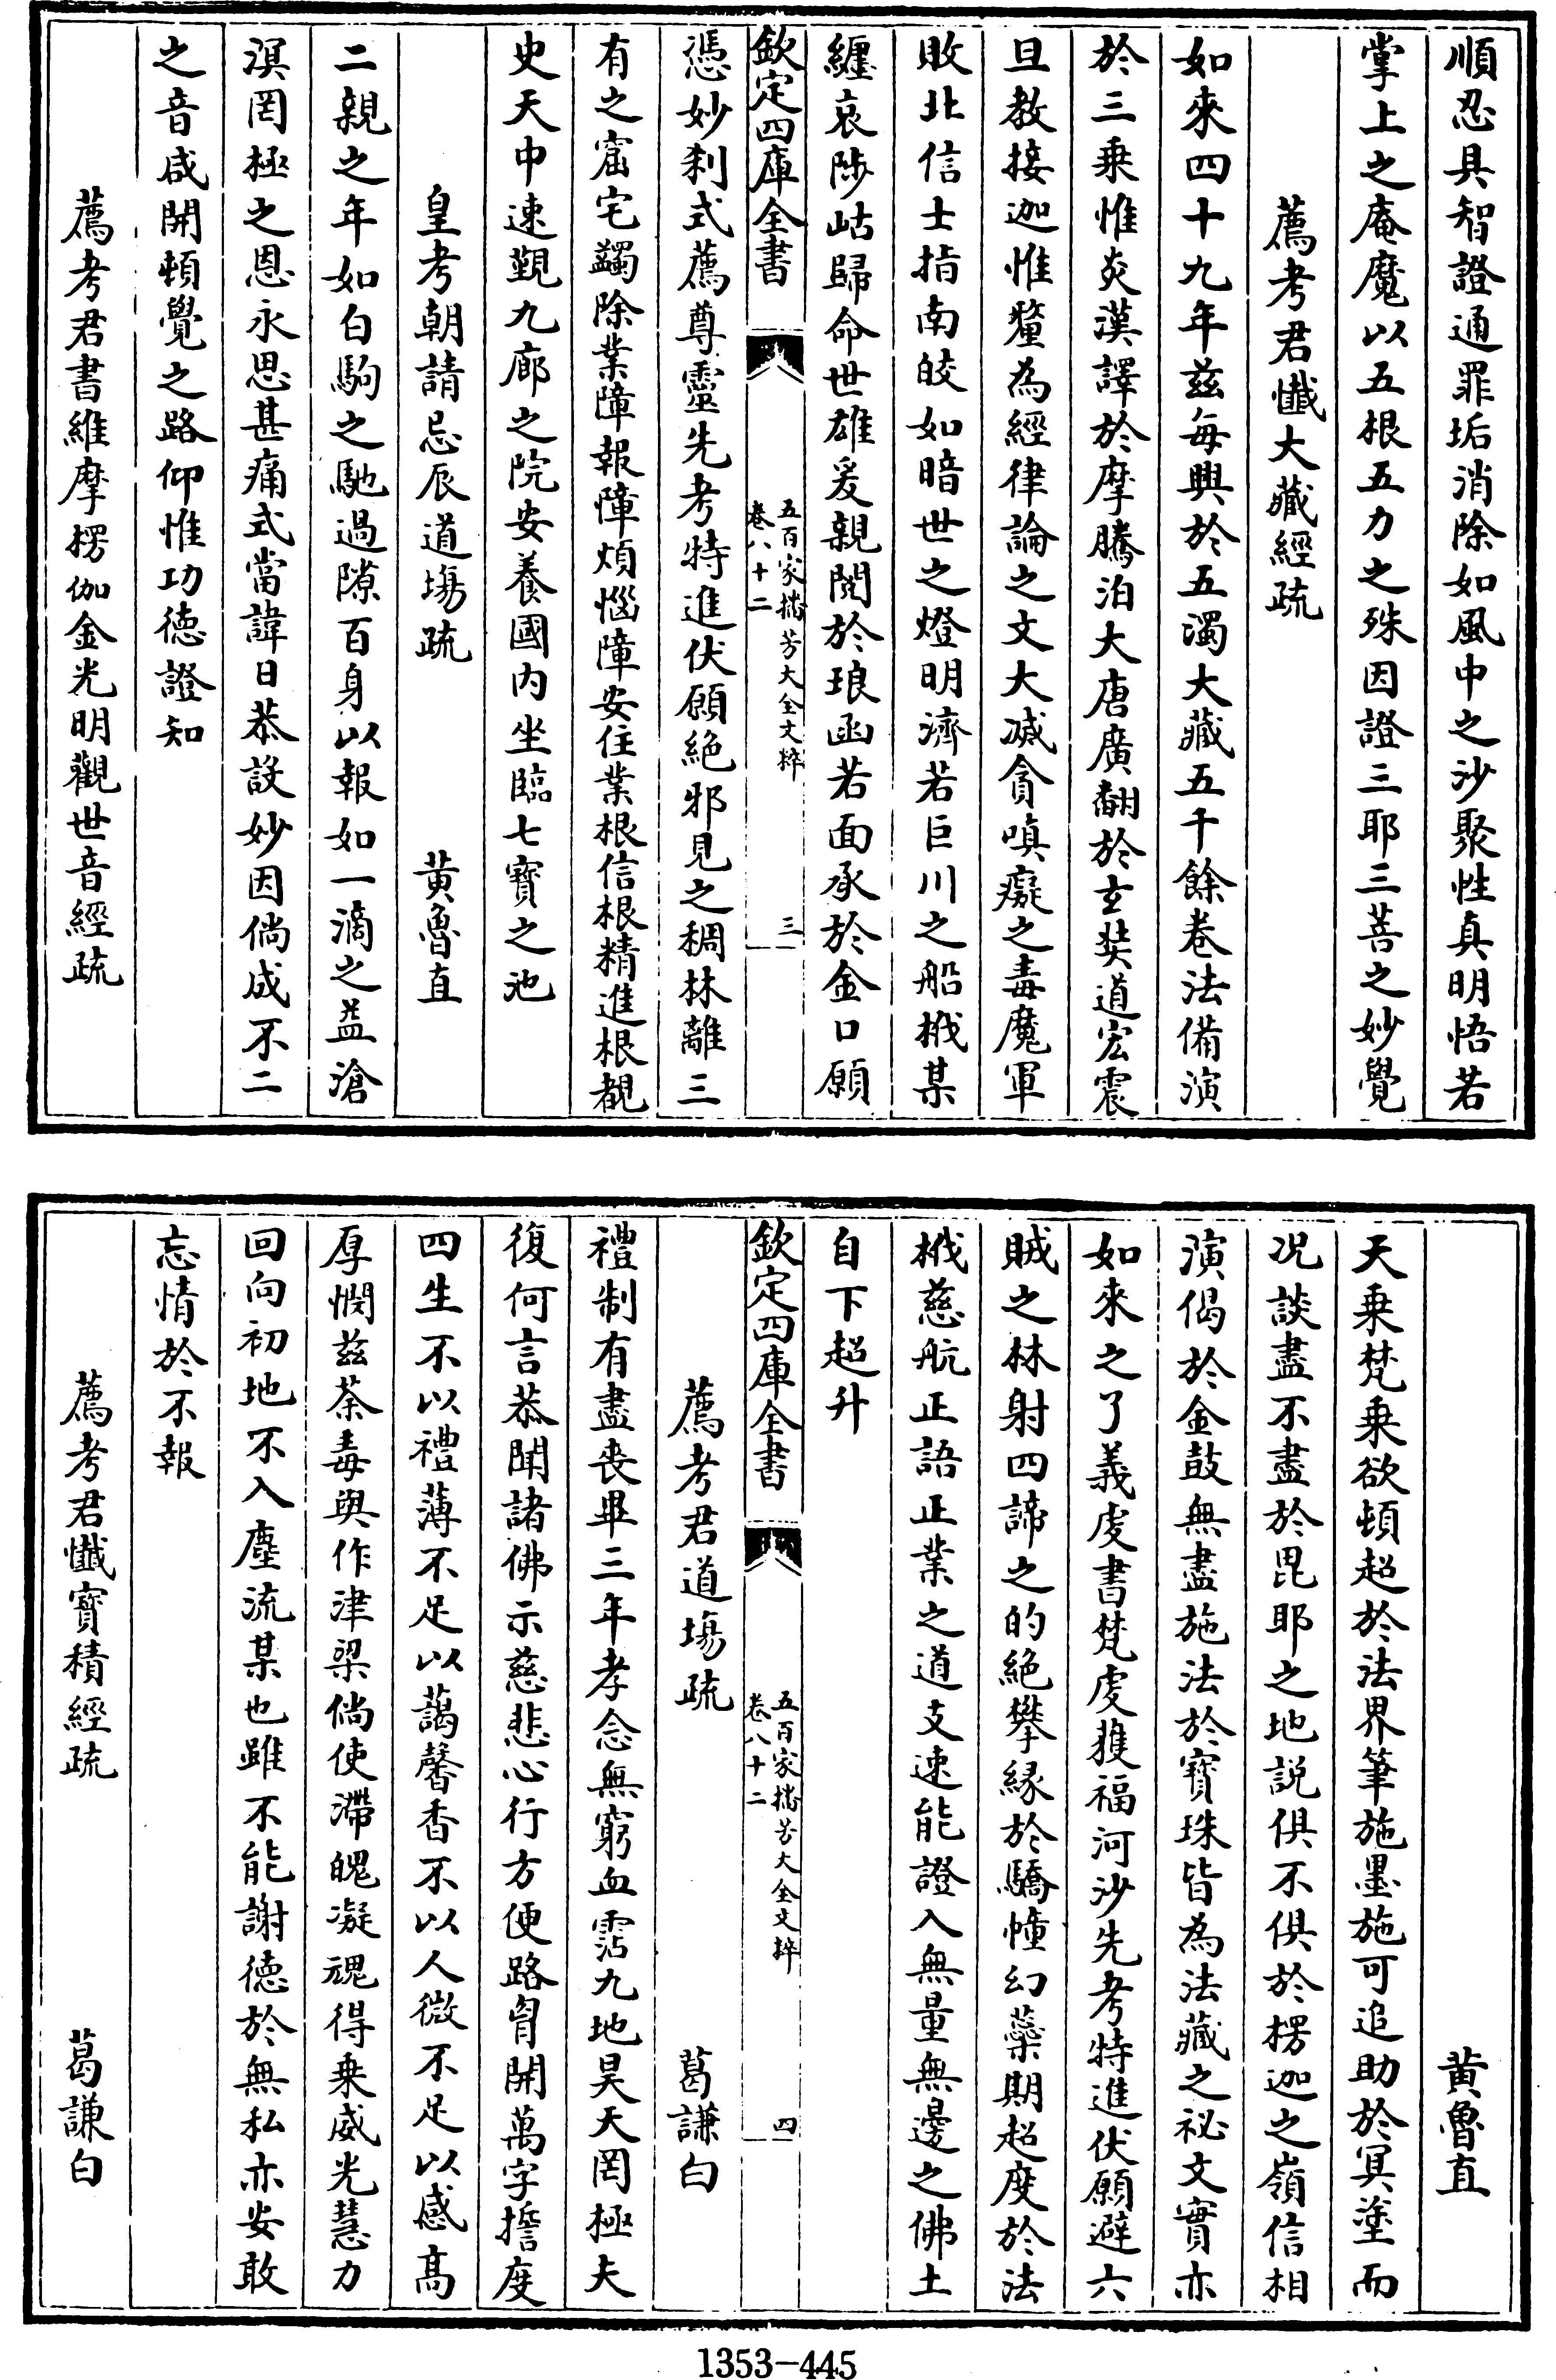 順忍具智證通罪垢消除如風中之沙聚性真明悟若
掌上之庵魔以五根五力之殊因證三耶三菩之妙覺
薦考君懺大藏經疏
如來四十九年兹每興於五濁大藏五千餘卷法備演
於三乗惟炎漢譯於摩騰洎大唐廣翻於玄奘道宏震
旦教接迦惟釐為經律論之文大減貪嗔癡之毒魔軍
敗北信士指南皎如暗世之燈明濟若巨川之船栰某
纏哀陟岵歸命世雄爰親閲於琅函若面承於金口願
欽定四庫全書
五百家播芳大全文粹
卷八十二
三
憑妙刹式薦尊靈先考特進伏願絶邪見之稠林離三
有之窟宅蠲除業障報障煩惱障安住業根信根精進根覩
史天中速覲九廊之院安養國内坐臨七寳之池
皇考朝請忌辰道場疏 黄魯直
二親之年如白駒之馳過隙百身以報如一滴之益滄
溟罔極之恩永思甚痛式當諱日恭設妙因倘成不二
之音咸開頓覺之路仰惟功德證知
薦考君書維摩楞伽金光明觀世音經疏
黄魯直
天乗梵乗欲頓超於法界筆施墨施可追助於冥塗而
况談盡不盡於毘耶之地説俱不俱於楞迦之嶺信相
演偈於金鼓無盡施法於寳珠皆為法藏之祕文實亦
如來之了義虔書梵虔獲福河沙先考特進伏願避六
賊之林射四諦之的絶攀緣於驕幢幻蘂期超度於法
栰慈航正語正業之道支速能證入無量無邊之佛土
自下超升
欽定四庫全書
五百家播芳大全文粹
卷八十二
四
薦考君道場疏 葛謙白
禮制有盡喪畢三年孝念無窮血霑九地昊天罔極夫
復何言恭聞諸佛示慈悲心行方便路肯開萬字擔度
四生不以禮薄不足以藹馨香不以人微不足以感髙
厚憫兹荼毒與作津梁倘使滯魄凝魂得乗威光慧力
回向初地不入塵流某也雖不能謝德於無私亦安敢
忘情於不報
薦考君懺寳積經疏 葛謙白
1353-445